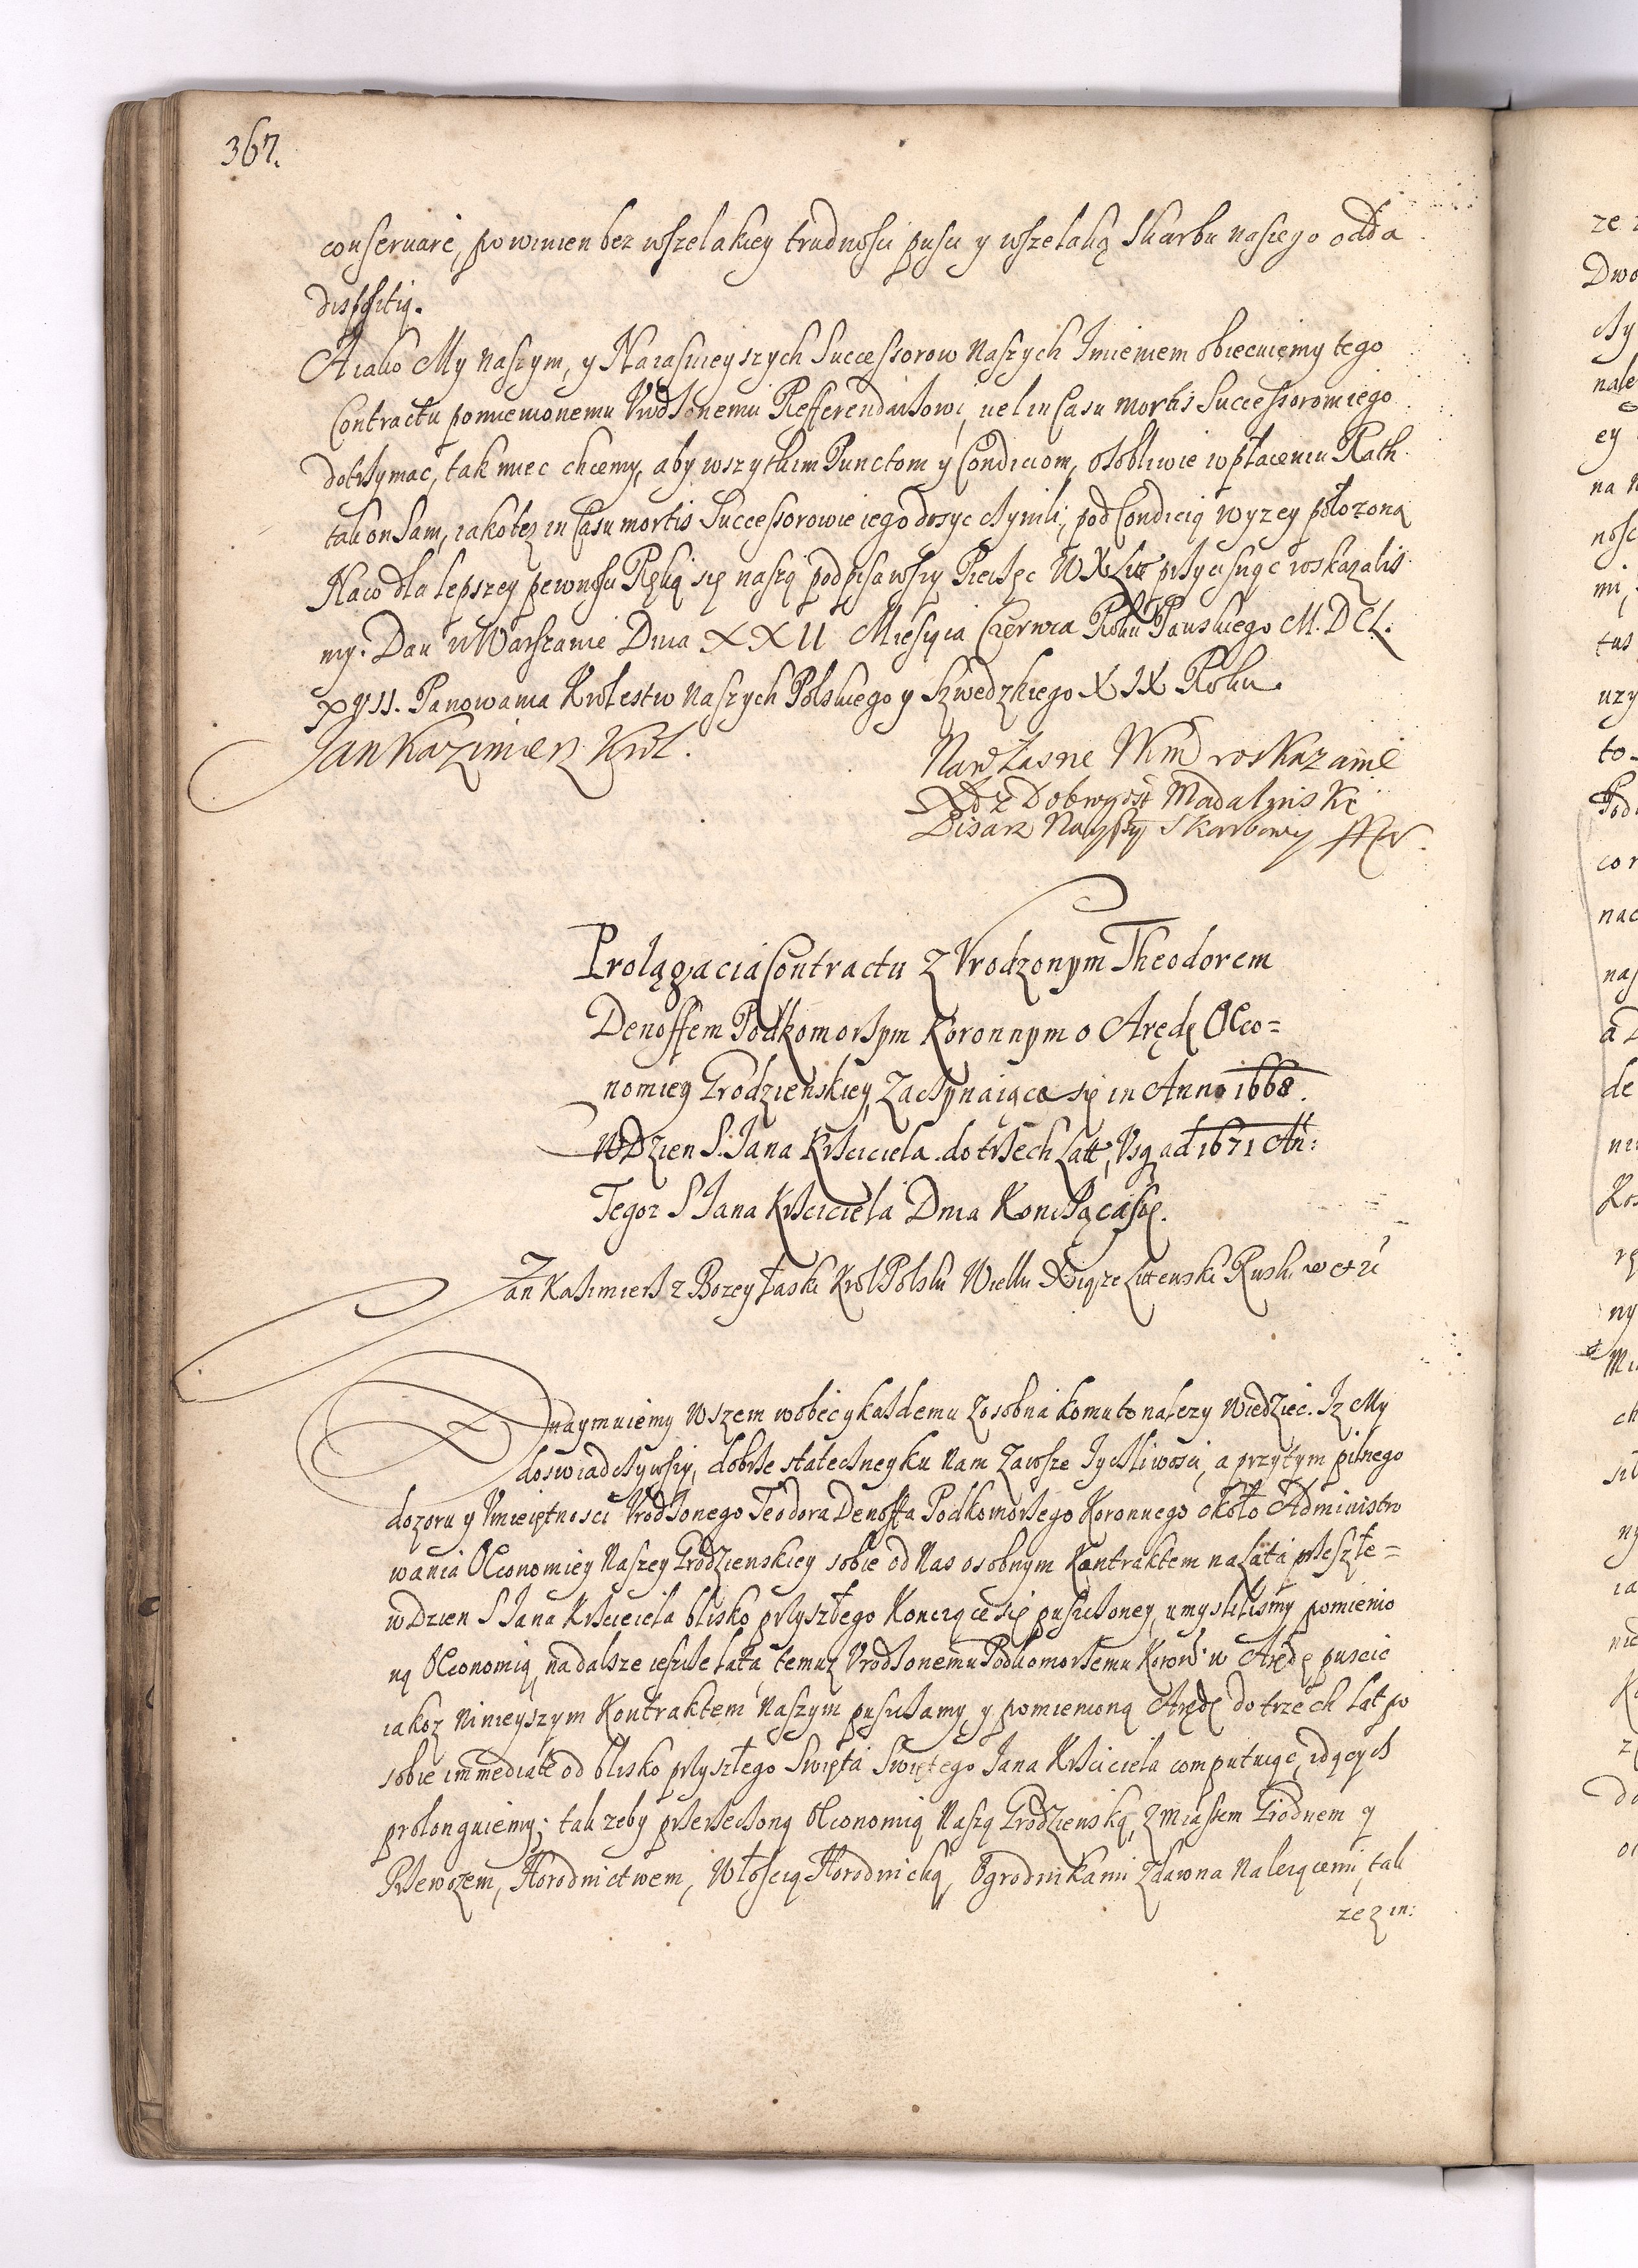 367.
conservare, powinien bez wszelakiey trudnosci pusci y wszelaką Skarbu naszego odda
disposituą.
A iako My naszym, y Naiasnieyszych Successorow Naszych Imieniem obiecuiemy tego
Contractu pomienionemu Vrodzonemu Refferendarzowi, uel in Casu mortis Successorom iego
dotrzymac, tak miec chcemy, aby wszytkim Punctom y Condiciom, osobliwie w płaceniu Rath
tak on Sam, iako też in Casu mortis Successorowie iego dosyc czynili, pod Condicią wyzey położoną
Naco dla lepszey pewnosci Ręką się naszą podpisawszy Pieczęc WXLit przycisnąc roskazalis
my. Dan w Warszawie Dnia XXII Miesiąca Czerwca Roku Panskiego M. DCL.
XVII. Panowania Krolestw Naszych Polskiego y Szwedzkiego XIX Roku.
Jan Kazimierz Krol.
Na własne JKM roskazanie
Dobrogost Madalynski
Pisarz Naywyszy Skarbowy
Prolągacia Contractu z Vrodzonym Theodorem
Denoffem Podkomorzym Koronnym o Arędę Oeco=
nomiey Grodzienskiey, Zaczynaiące się in Anno 1668.
W Dzien S. Jana Krzciciela do trzech Latt, Vsq ad 1671 An:
Tegoz S Jana Krzciciela Dnia Konczącą się.
Jan Kazimierz z Bozey Łaski Krol Polski Wielki Xiąze Littewski Ruski etc
Znaymuiemy Wszem wobec y kazdemu zosobna komu to nalezy Wiedziec. Iz My
doswiadczywszy, dobrze stateczney ku Nam zawsze Zyczliwosci, a przytym pilnego
dozoru y Vmieiętnosci Vrodzonego Teodora Denoffa Podkomorzego Koronnego około Administro
wania Oeconomiey Naszey Grodzienskiey sobie od Nas osobnym Kontraktem na Lata przeszłe=
w Dzien S Jana Krzciciela blisko przyszłego Koncząceь się puszczoney, umyslilismy pomienio
ną Oeconomią, na dalsze ieszcze Lata temuz Vrodzonemu Podkomorzemu Koron: w Arędę puscic
iakoz Ninieyszym Kontraktem Naszym puszczamy, y pomienioną Arędę do trzech Lat po
sobie immediate od blisko przyszłego Swięta Swiętego Jana Krzciciela computuiąc, idących
prolonguiemy; tak zeby przerzeczoną Oeconomią Naszą Grodzienską, z Miastem Grodnem y
Przewozem, Horodnictwem, Włoscią Horodnicką, Ogrodnikami zdawna Nalezącemi, tak
ze z in: